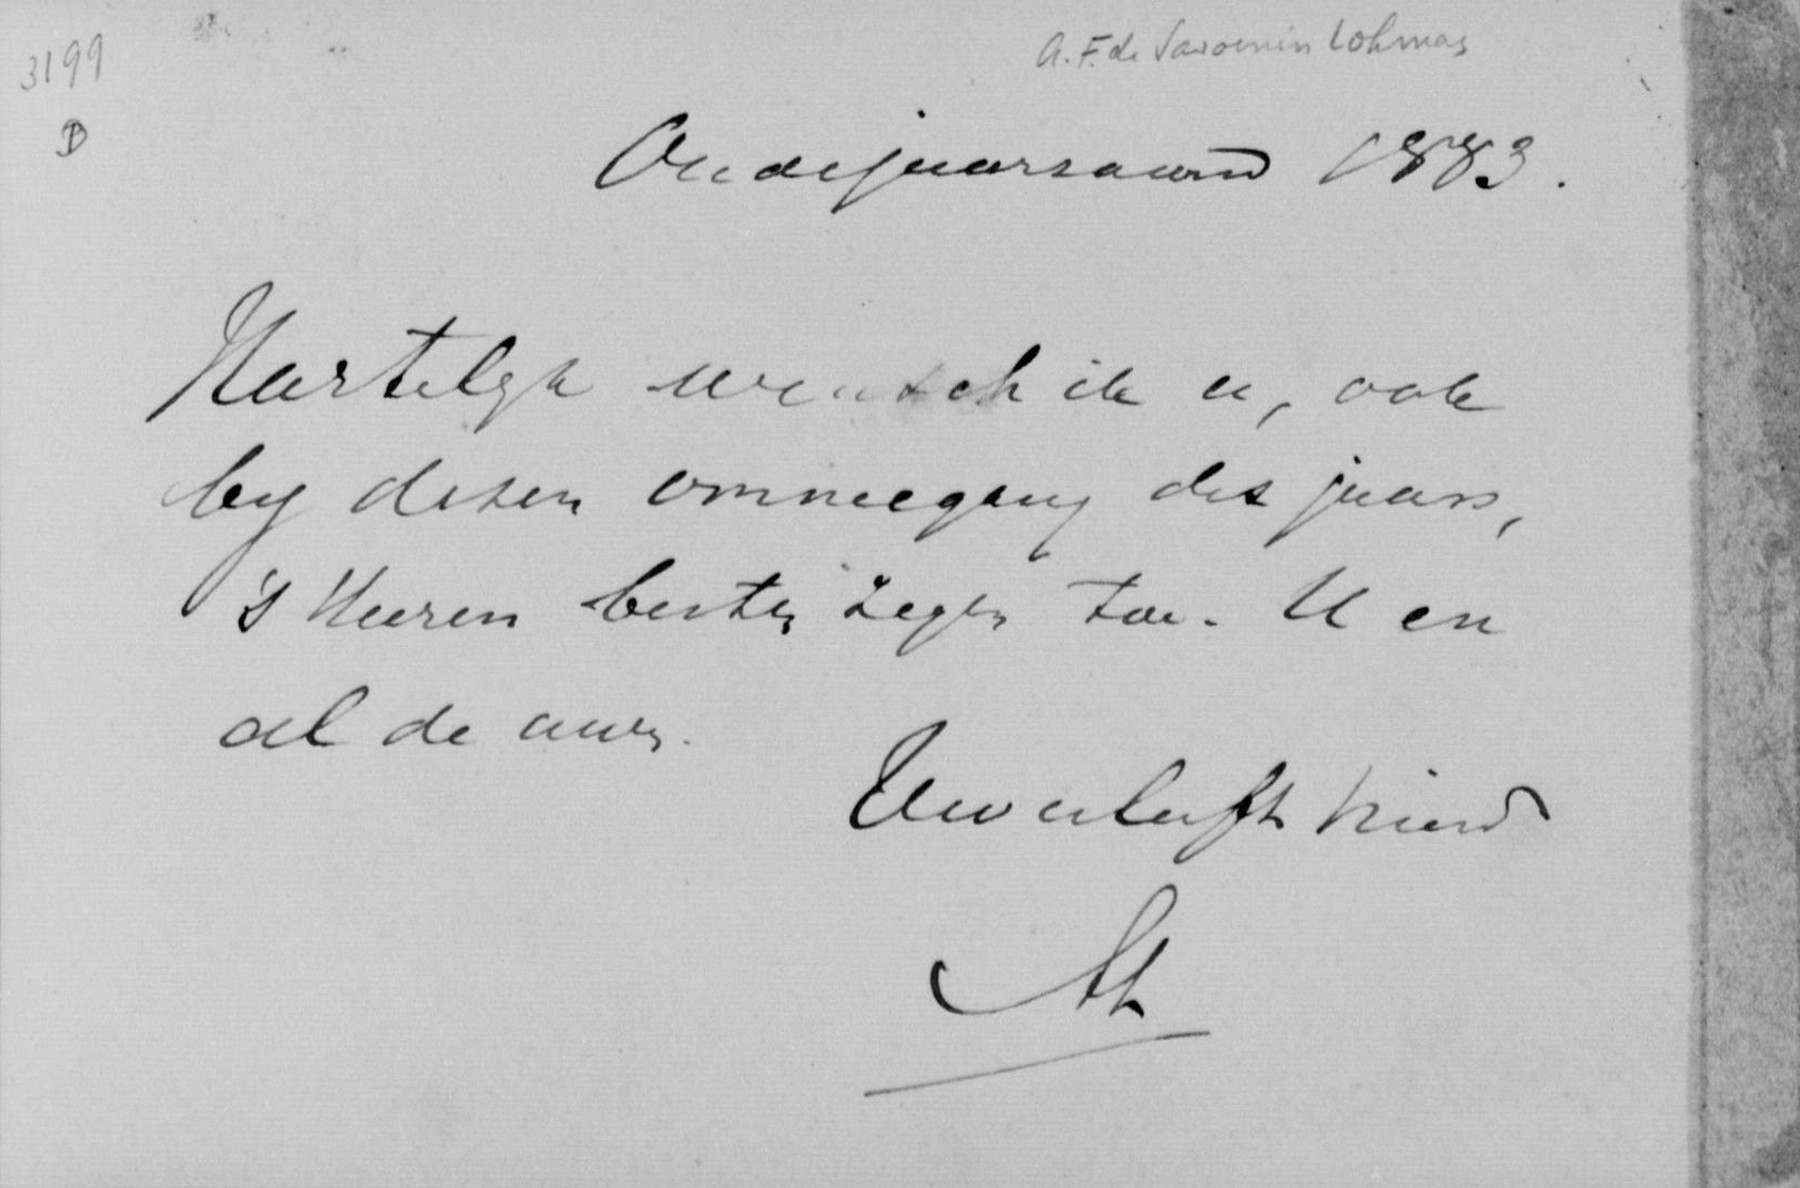 3199
D
A. F. de Savornin Lohman
Oudejaarsavond 1883.
Hartelijk wensch ik u, ook
by dezen ommegang des jaars,
's Heeren besten zegen toe. U en
al de uwen.
Uw vriend